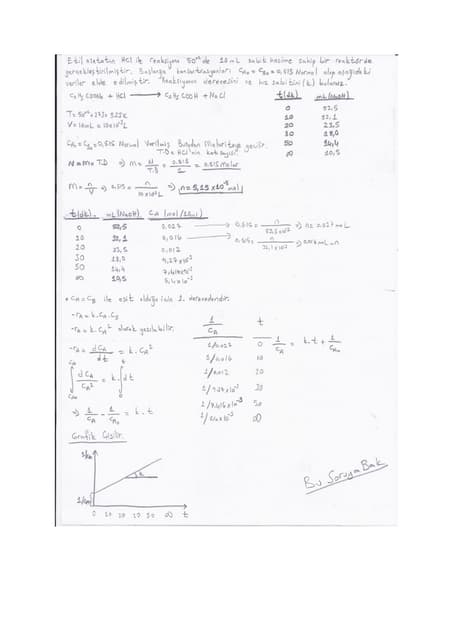 Etil asetatın HCl ile reaksiyonu 50°C de 10 mL sabit hacime sahip bir reaktörde
gerçekleştirilmiştir. Başlangıç konsantrasyonları CA0 = CB0 = 0,515 Normal olup aşağıdaki
veriler elde edilmiştir. Reaksiyonun derecesini ve hız sabitini (k) bulunuz.
HCl → C2H5COOH + NaCl
t(dk) mL(NaOH)
0 52,5
10 32,1
20 23,5
30 18,0
50 14,4
∞ 10,5
T = 50°C + 273 = 323K
V = 10 mL = 10x10⁻³ L
CA = = 0,515 Normal Verilmiş Bundan Molariteye geçilir.
T.D = HCl'nin katsayısı
N = m.T.D ⇒ m = N/T.D = 0,515/1 = 0,515 molar
m = n/V ⇒ 0,515 = n/10x10⁻³L ⇒ n = 5,15x10⁻³ mol
t(dk) mL(NaOH) CA (mol/
0 52,5 0,027
10 32,1 0,016
20 23,5 0,012
30 18,0
50 14,4
∞ 10,5
* CA = CB ile eşit olduğu için 2. derecedendir.
-rA = k.CA.CB
-rA = k.CA² olarak yazılabilir.
-rA = dCA/dt = k.CA²
∫ dCA/CA² = k.∫dt
⇒ 1/CA - 1/CA0 = k.t
1/CA t
1/0,027 0
1/0,016 10
1/0,012 20
30
50
∞
1/CA = k.t + 1/CA0
Grafik Çizilir.
1/CA
1/CA0
0 10 20 30 50 ∞ t
Bu Soruya Bak